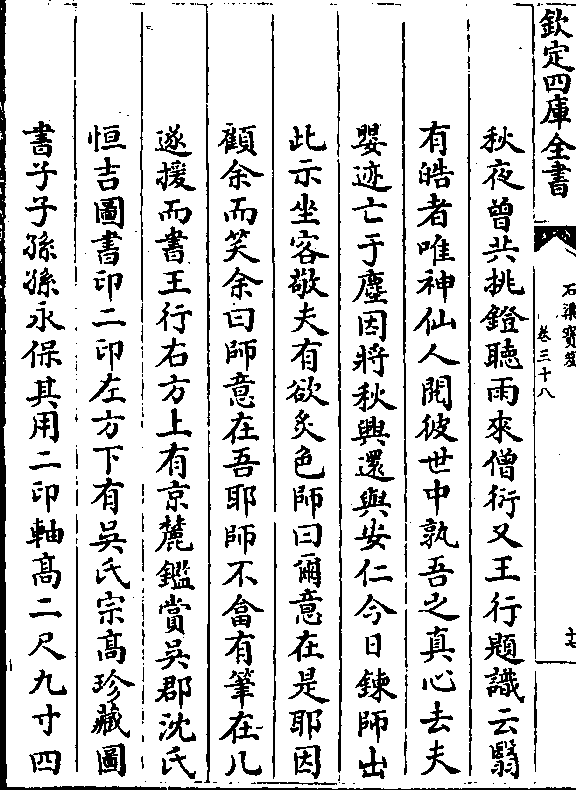 欽定四庫全書
石渠寶笈
卷三十八
十七
秋夜曾共挑鐙聽雨來僧衍又王行題識云翳
有皓者唯神仙人閱彼世中孰吾之真心去夫
嬰迹亡于塵因將秋興還與安仁今日鍊師出
此示坐客敬夫有欲炙色師曰爾意在是耶因
顧余而笑余曰師意在吾耶師不畣有筆在几
遂援而書王行右方上有京麓鑑賞吳郡沈氏
恒吉圖書印二印左方下有吳氏宗髙珍藏圖
書子子孫孫永保其用二印軸髙二尺九寸四